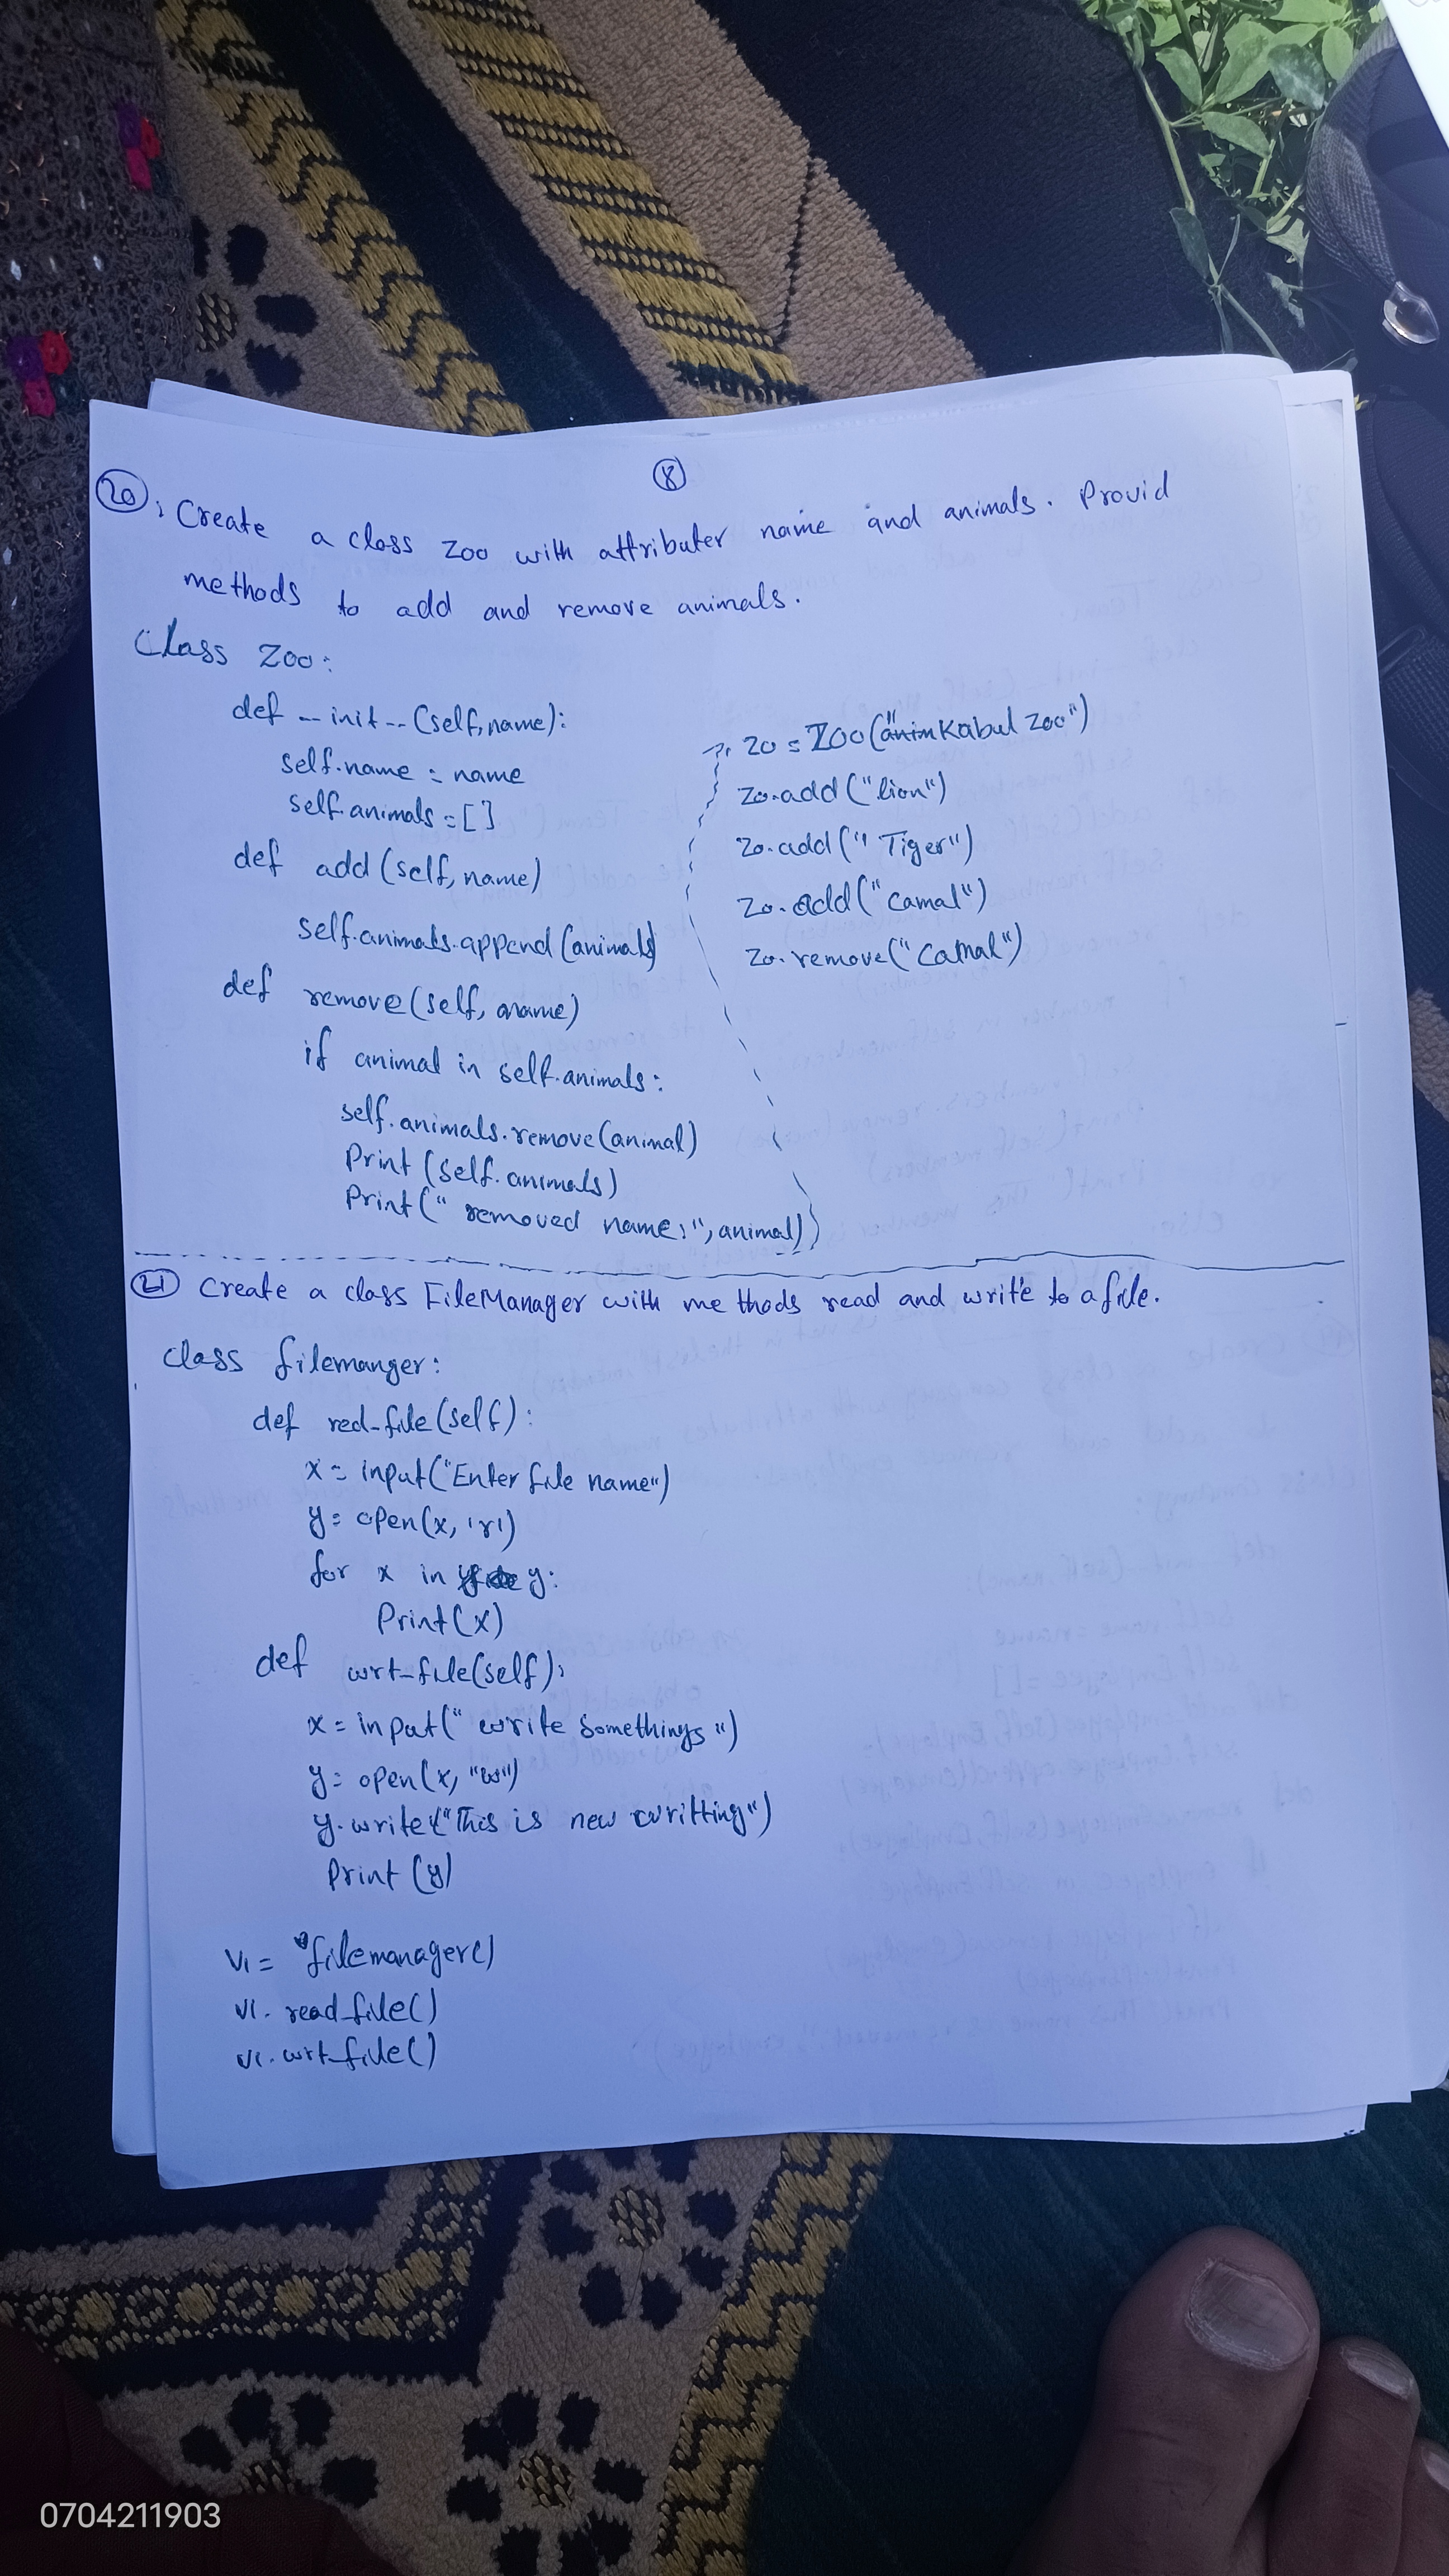 8
20: Create a class Zoo with attributer name and animals. Provid
methods to add and remove animals.
Class Zoo:
def __init__(self,name):
self.name = name
self.animals = []
def add(self, name)
self.animals.append(animals)
def remove(self, name)
if animal in self.animals:
self.animals.remove(animal)
Print (self.animals)
Print(" removed name:", animal)
zo = Zoo("Kabul Zoo")
zo.add("lion")
zo.add("Tiger")
zo.add("Camal")
zo.remove("Camal")
21 Create a class FileManager with methods read and write to a file.
class filemanger:
def red_file(self):
x = input("Enter file name")
y = open(x, 'r')
for x in y:
Print(x)
def wrt_file(self):
x = input(" write Somethings ")
y = open(x, "w")
y.write("This is new writting")
Print (y)
v1 = filemanager()
v1. read_file()
v1. wrt_file()
0704211903